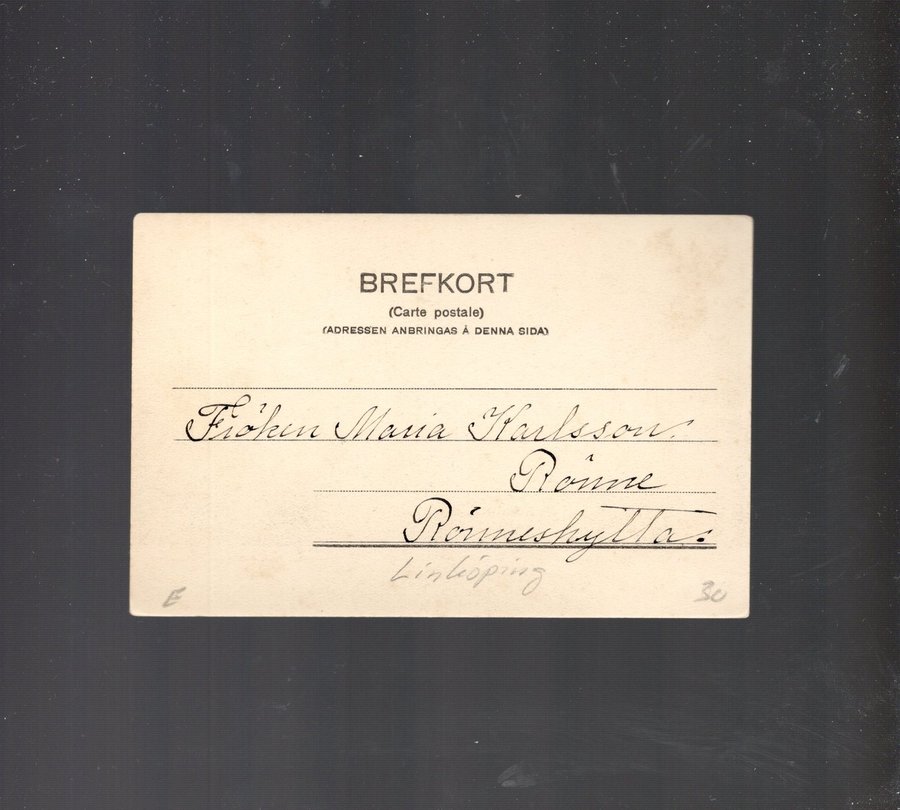 BREFKORT
(Carte postale)
(ADRESSEN ANBRINGAS Å DENNA SIDA)
Fröken Maria Karlsson.
Rönne
Rönneshytta.
Linköping
E 30